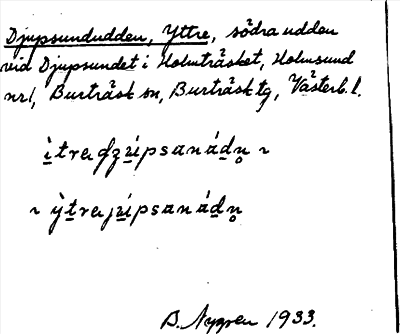 Djupsundudden, Yttre, södra udden
vid Djupsundet i Holmträsket, Holmsund
nr 1, Burträsk sn, Burträsk tg, Västerb. l.
ìtradzúpsanádn̥ ~
~ ỳtrajúpsanádn̥
B. Nygren 1933.